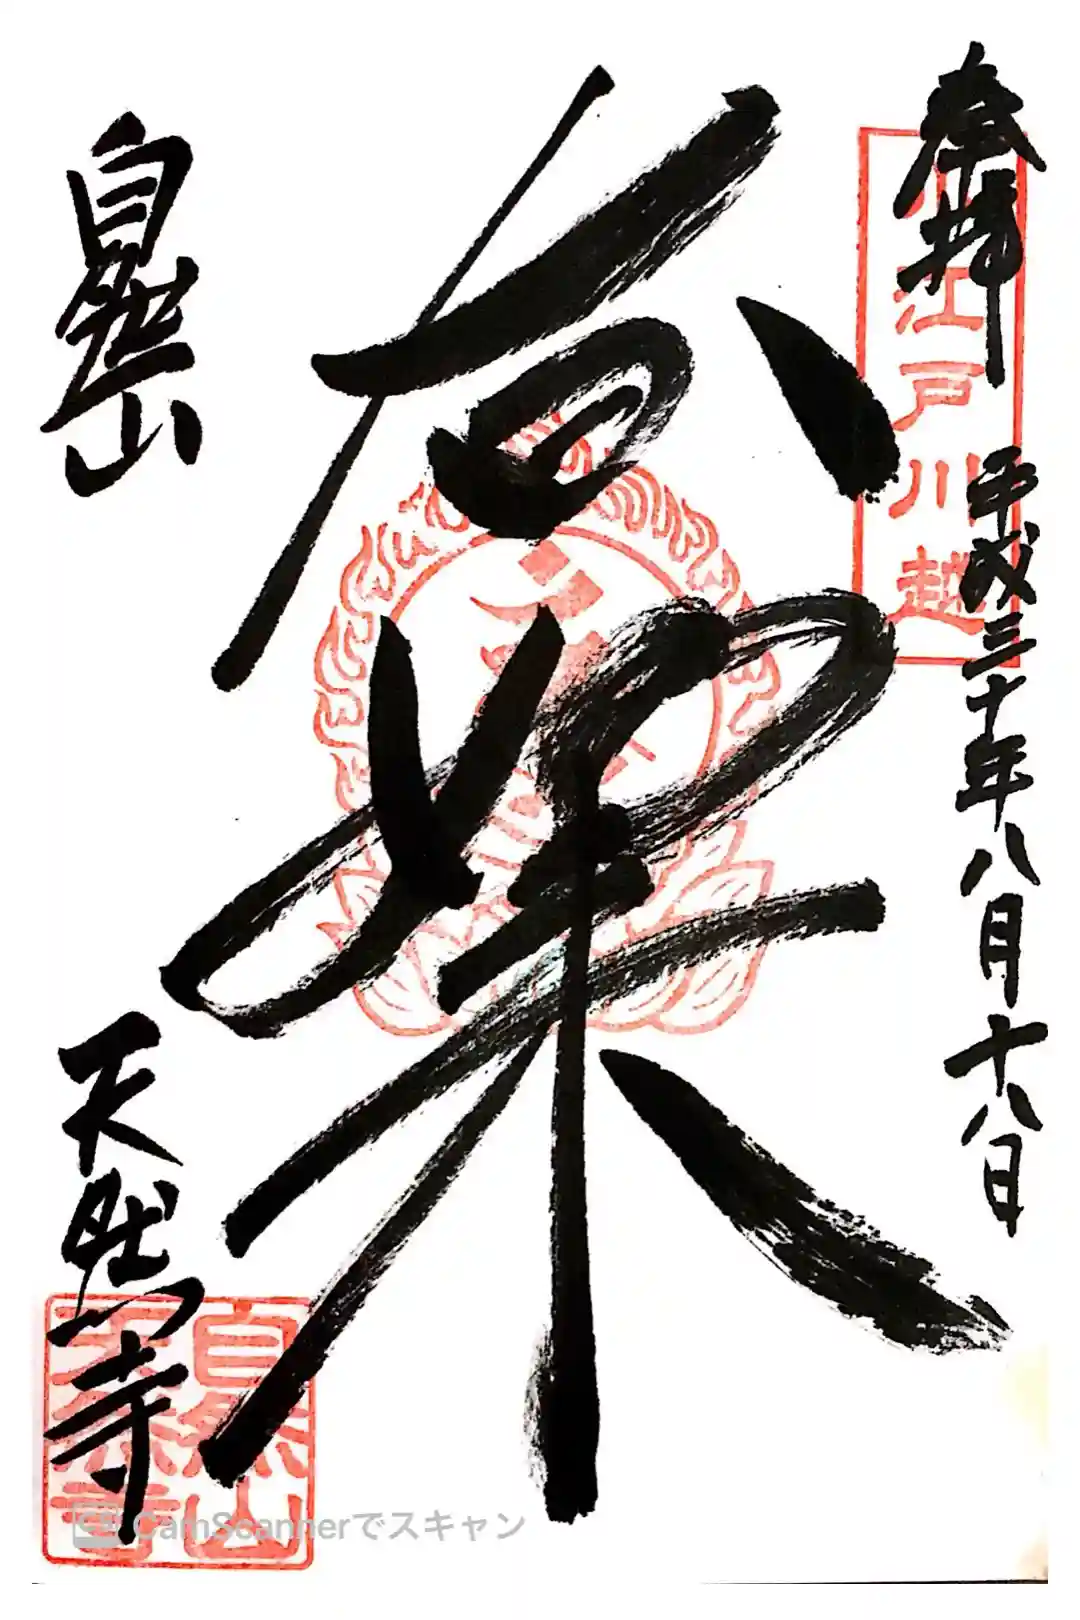 奉拝
小江戸川越
平成三十年八月十八日
自然山
天然寺
自然山
天然寺
CS CamScannerでスキャン